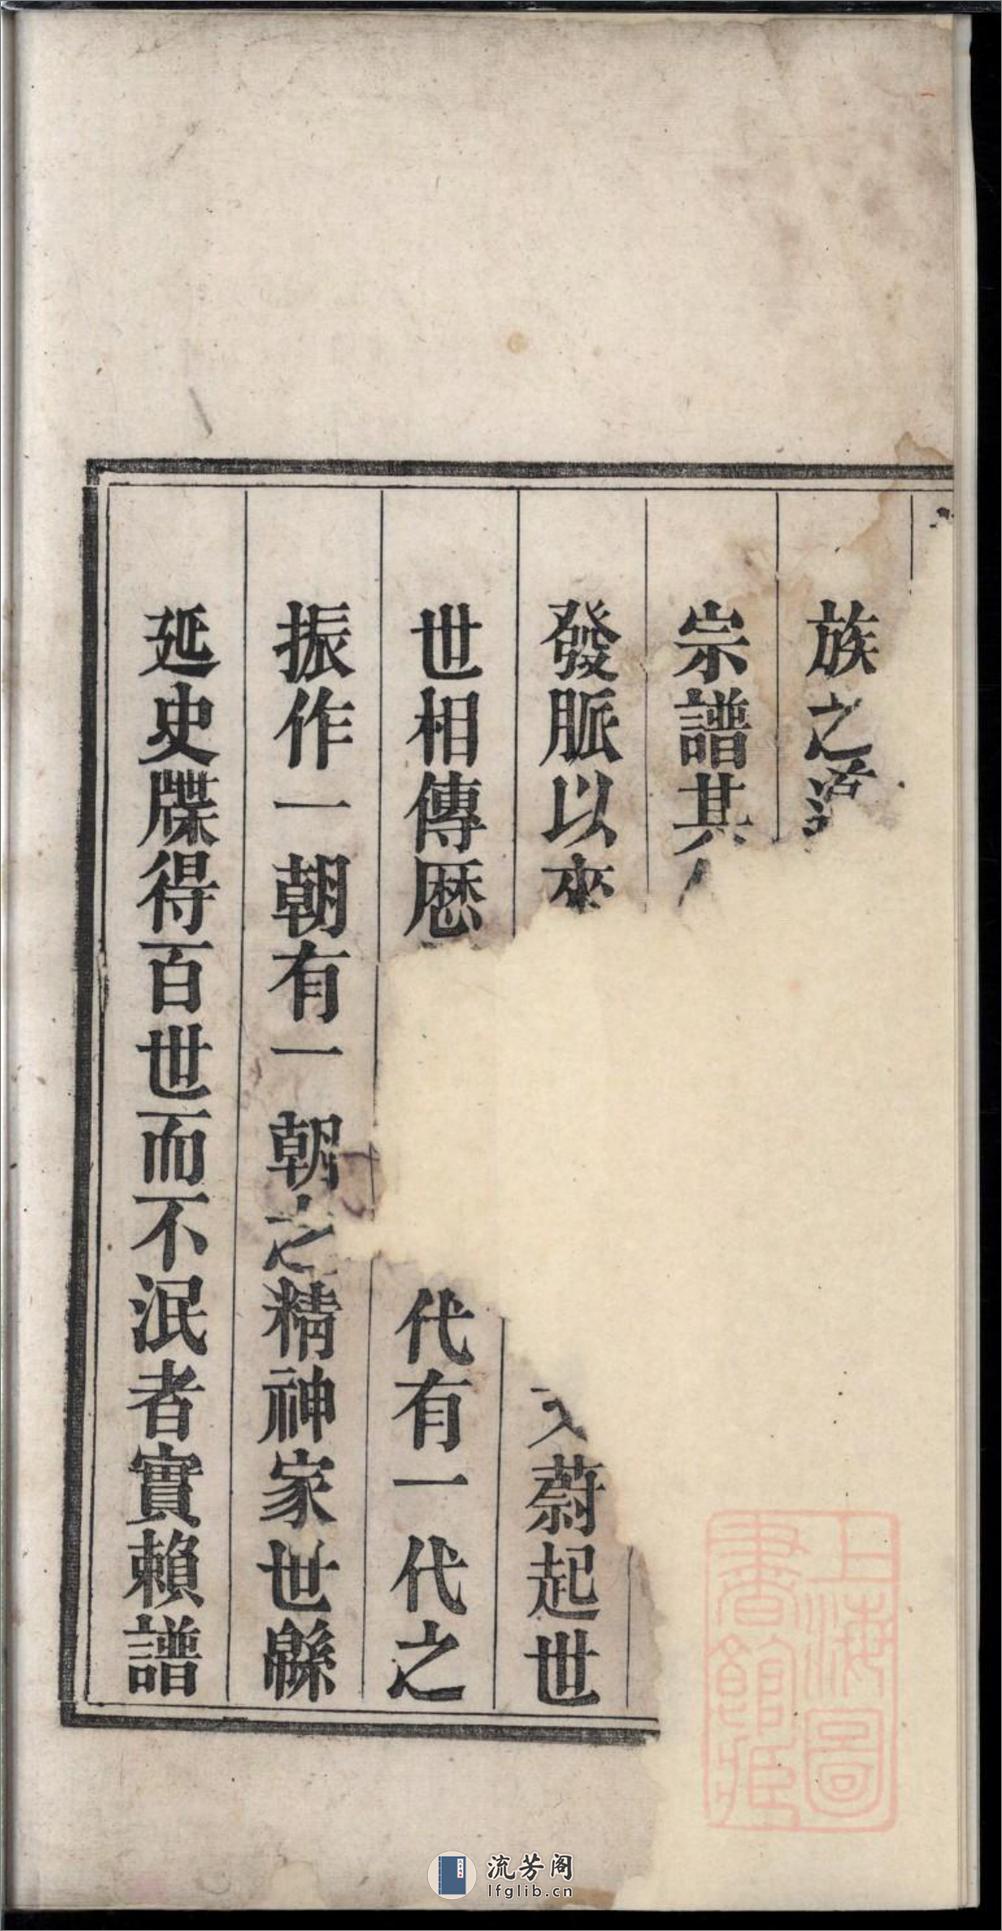 族之
宗譜其
發脈以來
世相傳歷
文蔚起世
代有一代之
振作一朝有一朝之精神家世緜
延史牒得百世而不泯者實賴譜
上海圖
書館藏
流芳阁
lfglib.cn